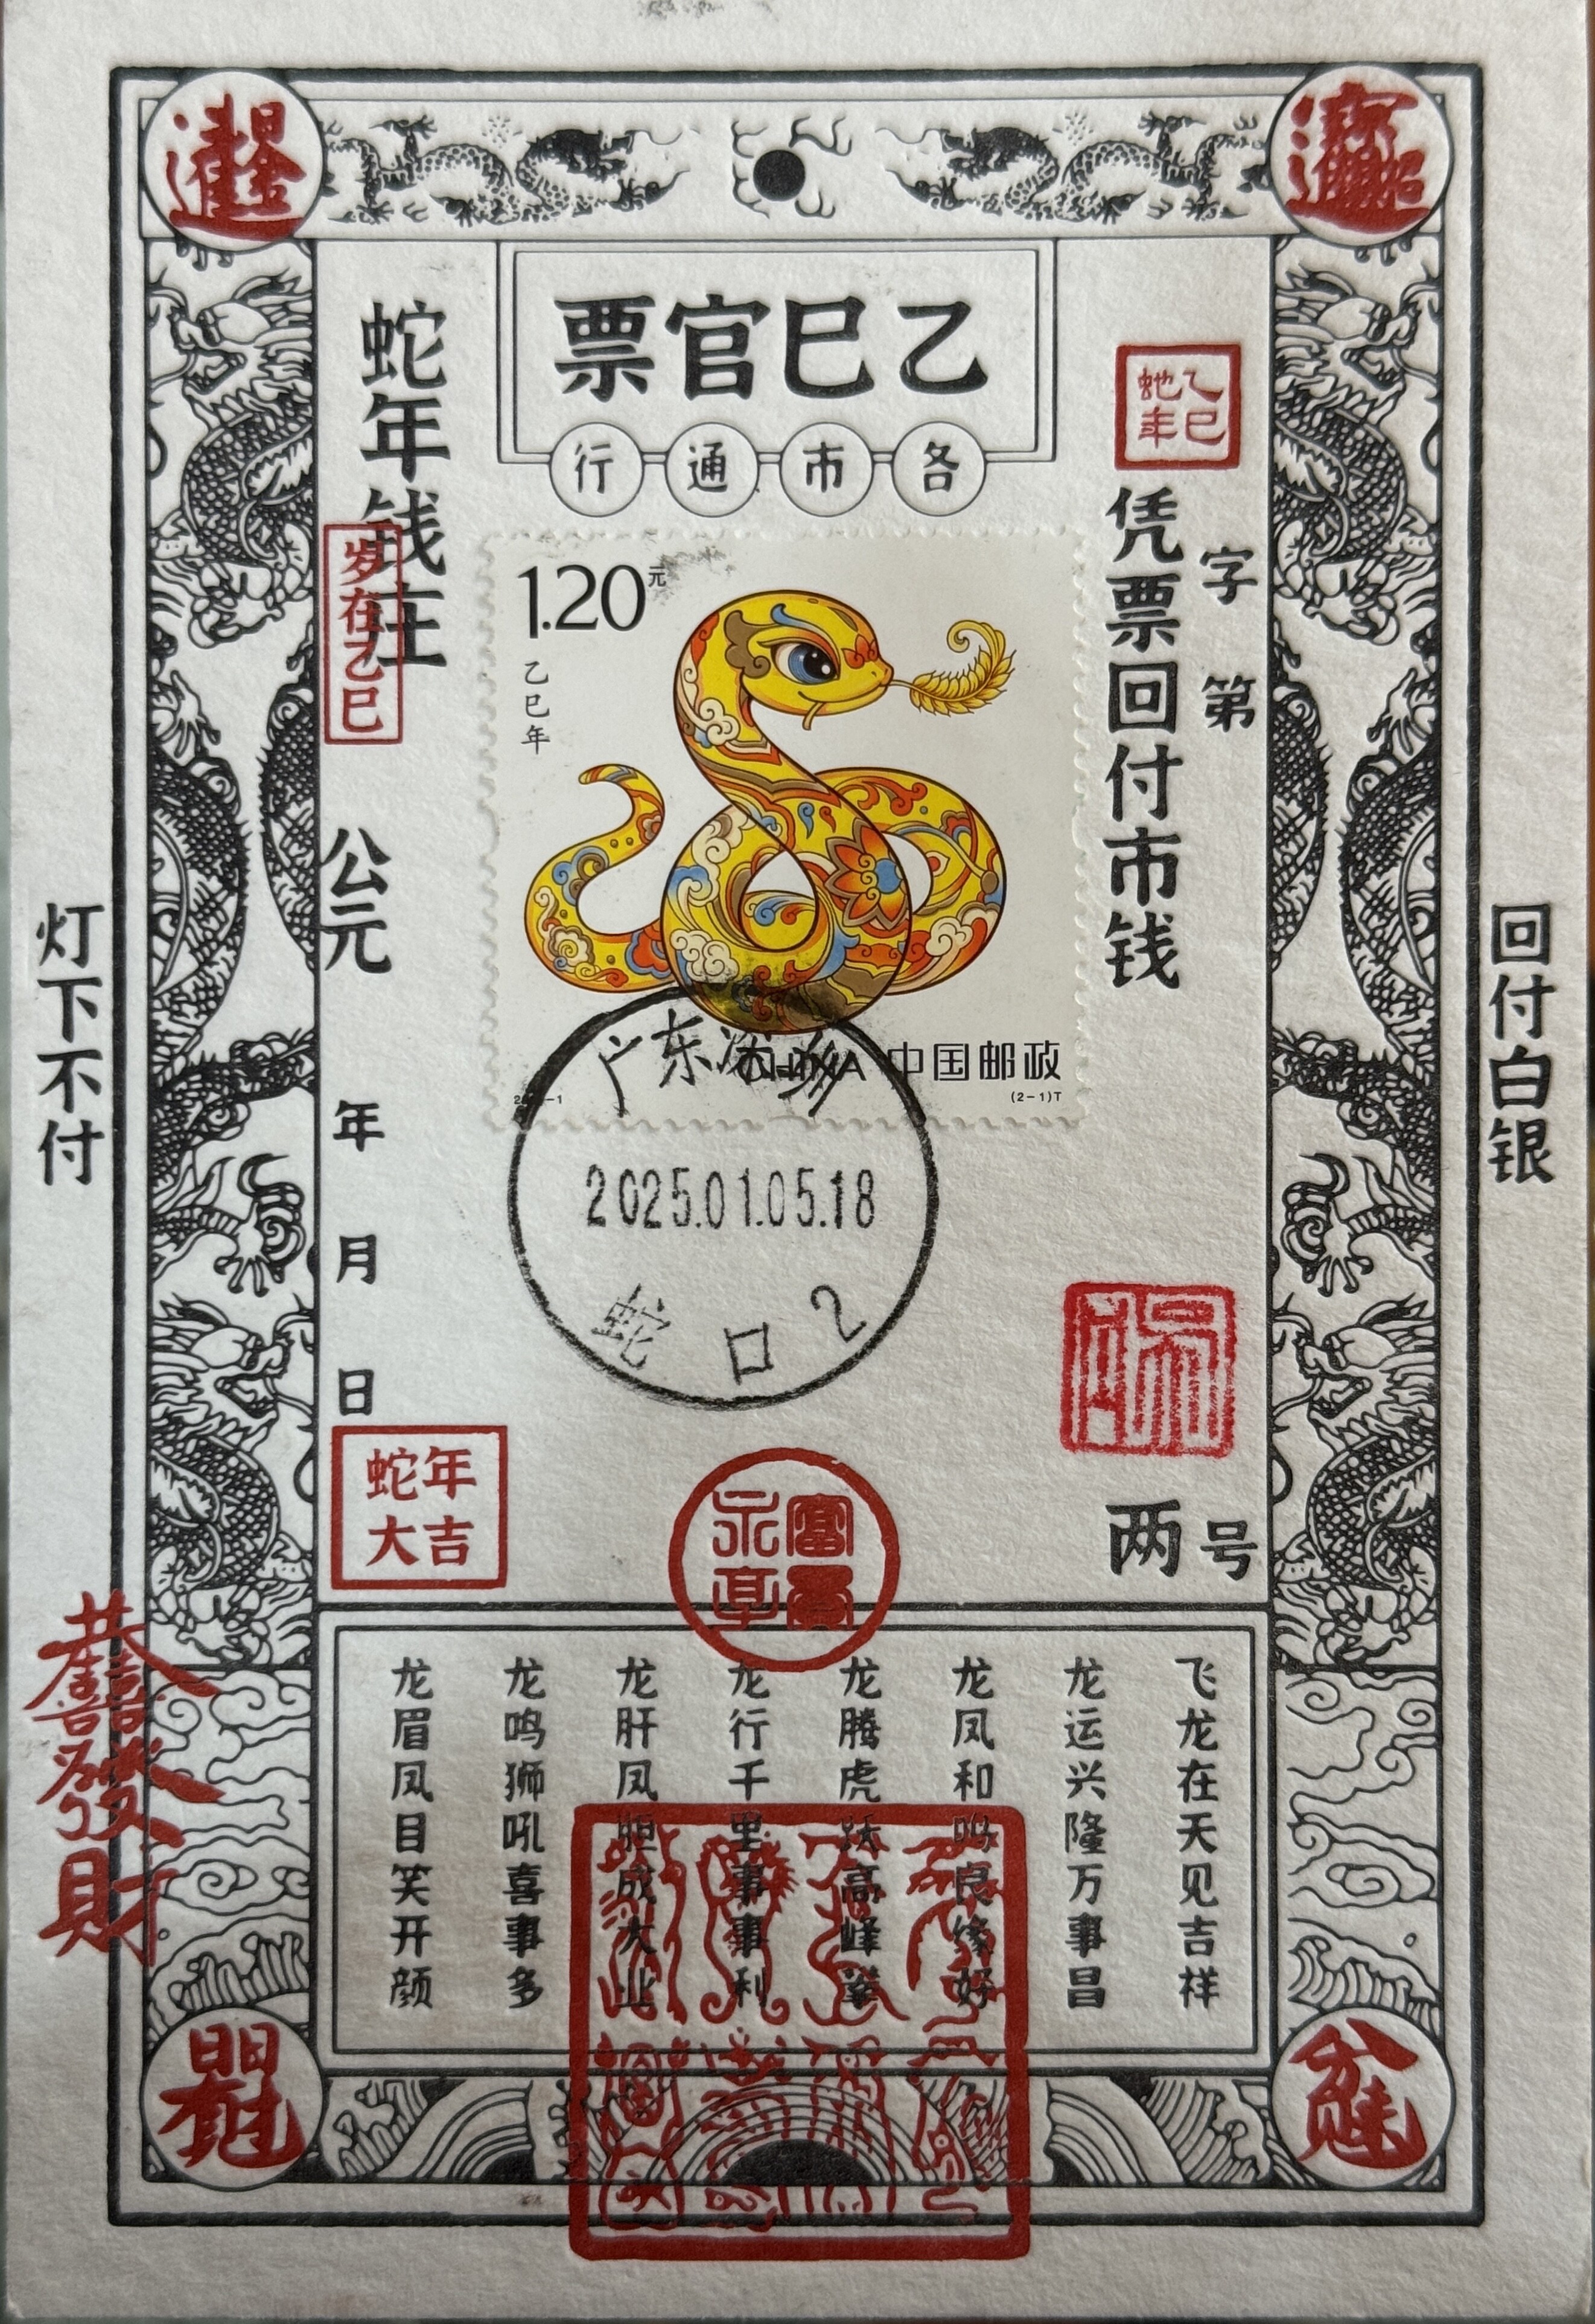 乙巳官票
各市通行
乙巳
蛇年
字第
号
凭票回付市钱
两
蛇年钱庄
岁在乙巳
公元
年
月
日
1.20元
乙巳年
CHINA 中国邮政
(2-1)T
广东
2025.01.05.18
蛇口2
蛇年
大吉
富贵
永享
飞龙在天见吉祥
龙运兴隆万事昌
龙凤和鸣良缘好
龙腾虎跃高峰攀
龙行千里事事利
龙肝凤胆成大业
龙鸣狮吼喜事多
龙眉凤目笑开颜
回付白银
灯下不付
恭喜發財